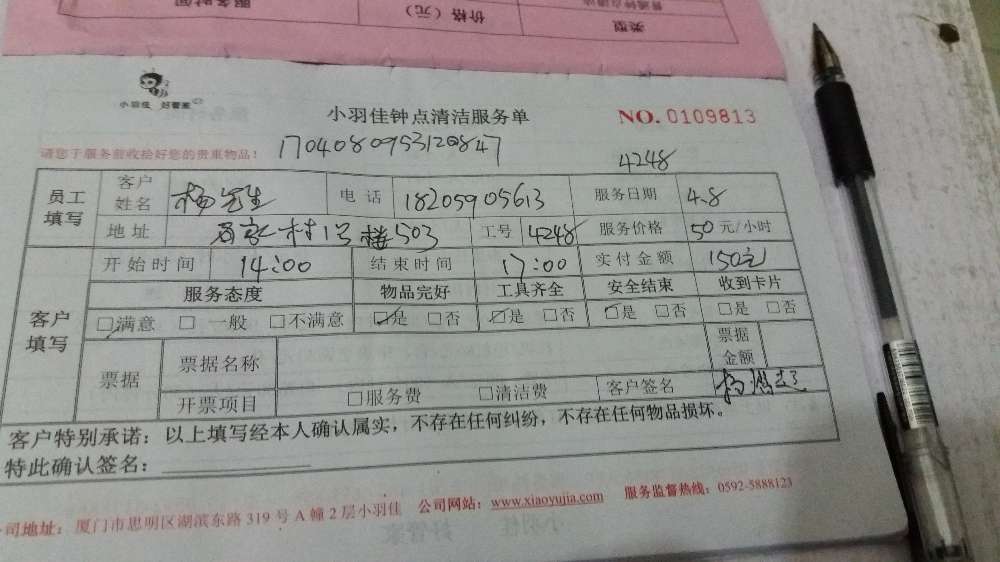 类型
价格（元）
服务时间
小羽佳 好管家
小羽佳钟点清洁服务单
NO. 0109813
请您于服务前收拾好您的贵重物品！
4248
员工填写
客户姓名 杨先生 电话 18205905613 服务日期 4.8
地址 村1号楼503 工号 4248 服务价格 50元/小时
开始时间 14:00 结束时间 17:00 实付金额 150元
客户填写
服务态度 物品完好 工具齐全 安全结束 收到卡片
□满意 □一般 □不满意 □是 □否 □是 □否 □是 □否 □是 □否
票据 票据名称 票据金额
开票项目 □服务费 □清洁费 客户签名
客户特别承诺：以上填写经本人确认属实，不存在任何纠纷，不存在任何物品损坏。
特此确认签名：
司地址：厦门市思明区湖滨东路319号A幢2层小羽佳 公司网站：www.xiaoyujia.com 服务监督热线：0592-5888123